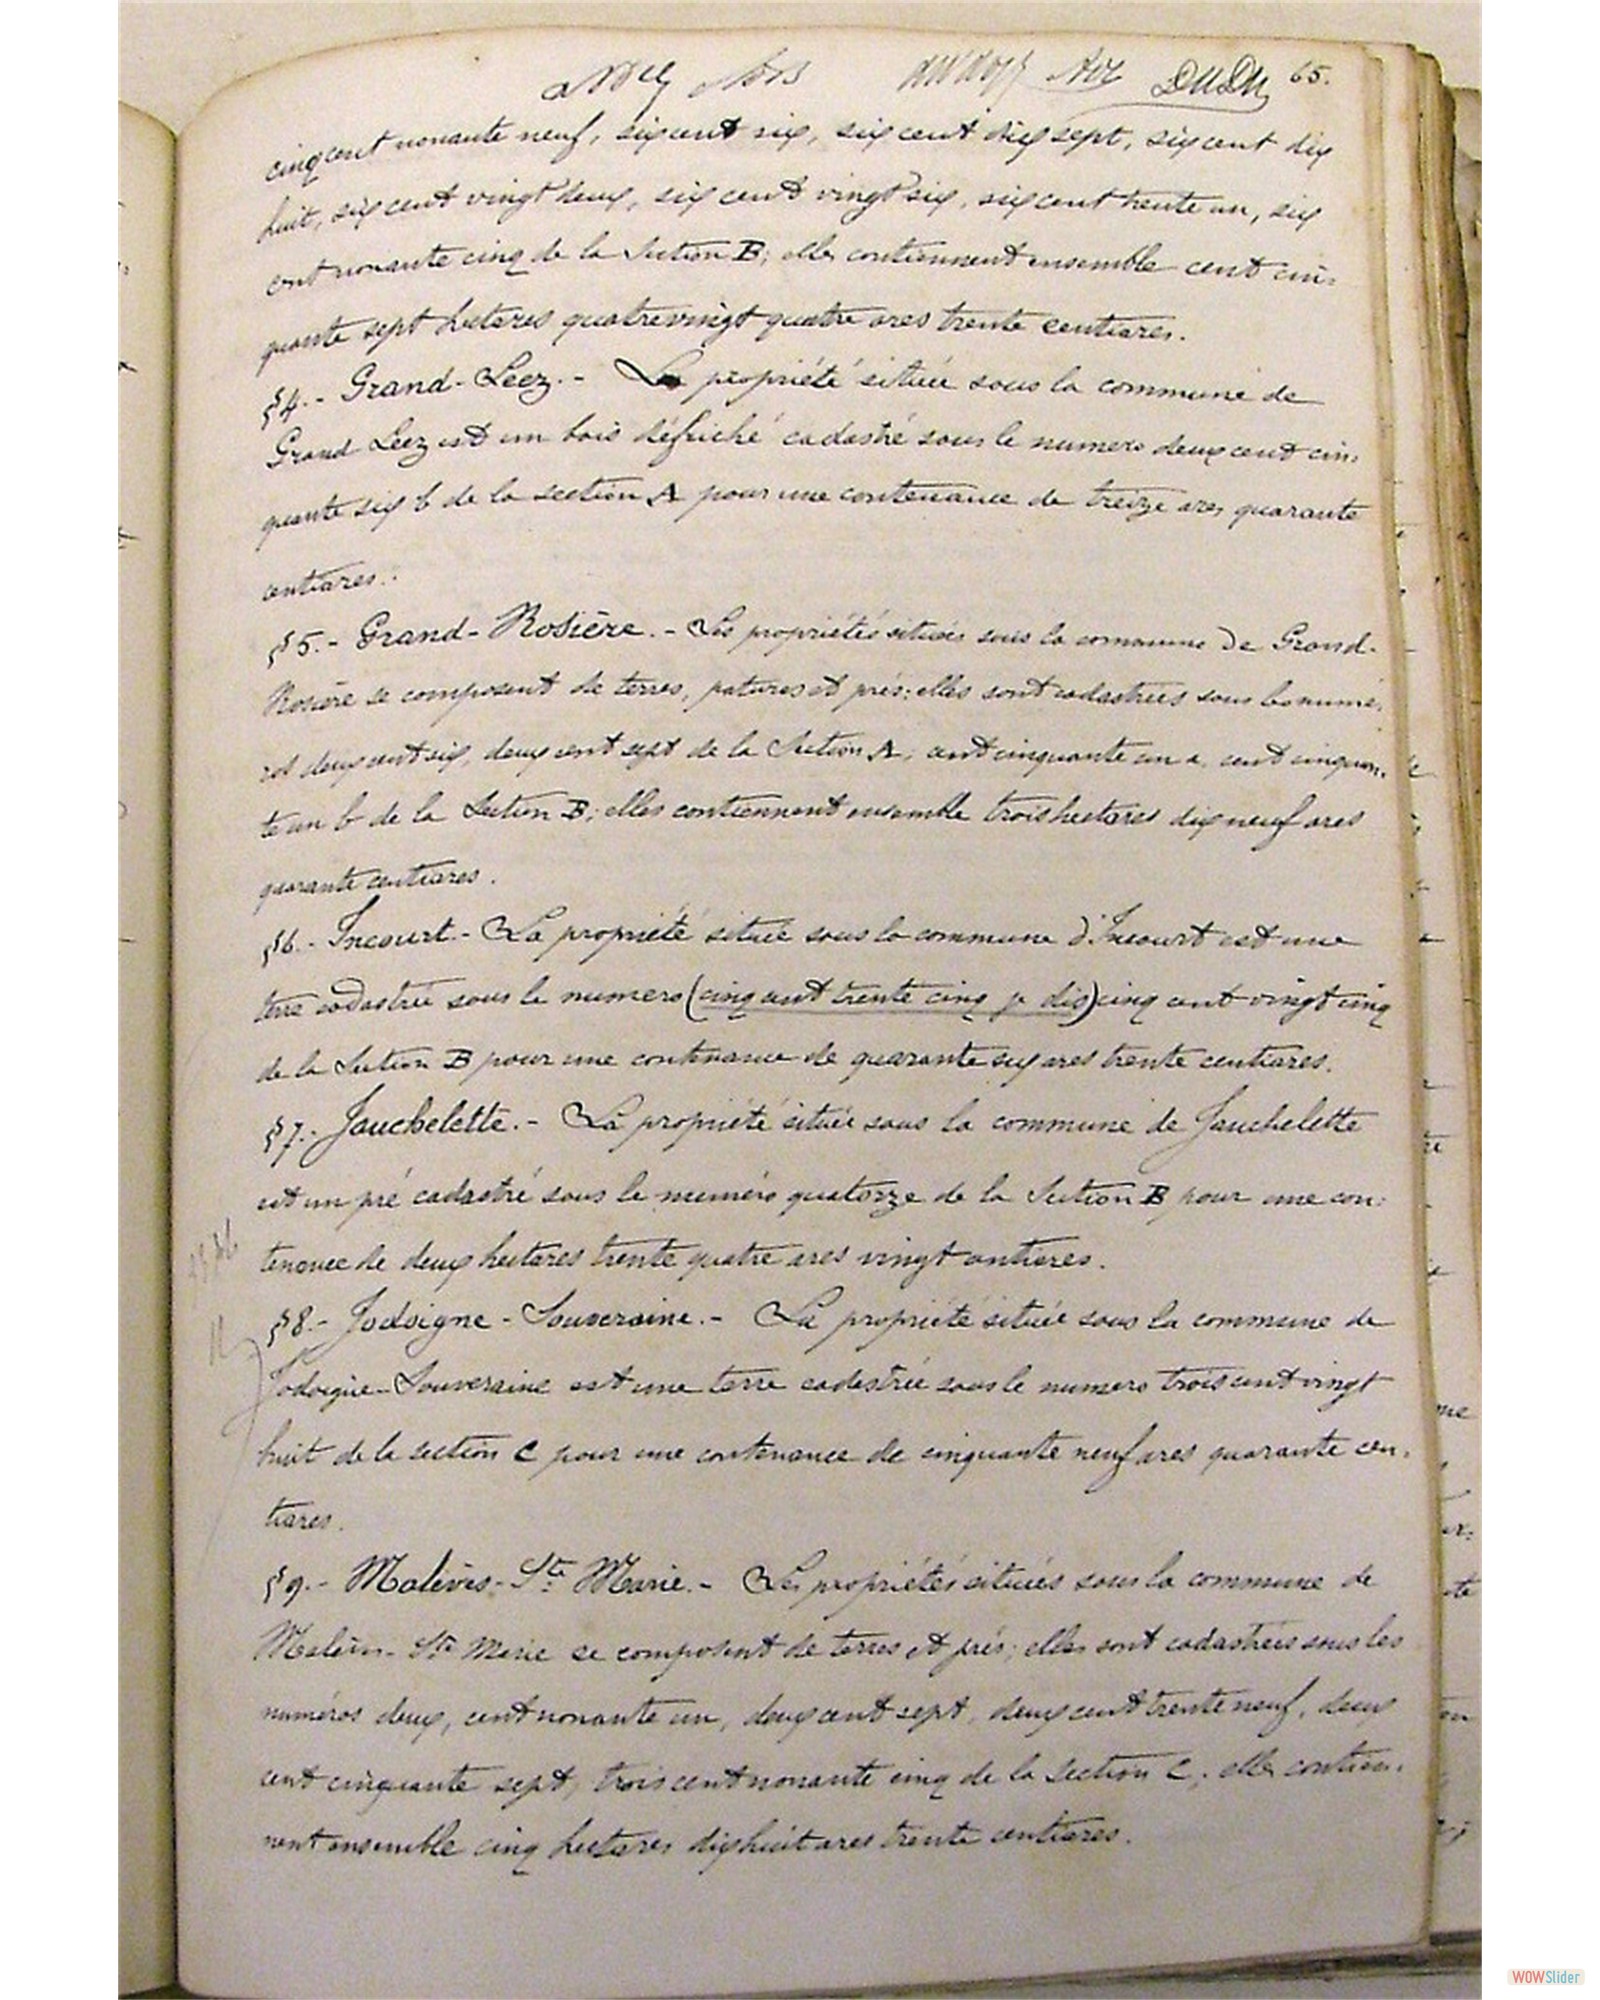 65.
cinqcent nonante neuf, sixcent six, six cent dix sept, six cent dix
huit, six cent vingt deux, six cent vingt six, six cent trente un, six
cent nonante cinq de la Section B; elles contiennent ensemble cent cin-
quante sept hectares quatrevingt quatre ares trente centiares.
§4.- Grand-Leez.- La propriété située sous la commune de
Grand Leez est un bois défriché cadastré sous le numero deux cent cin-
quante six b de la section A pour une contenance de treize ares quarante
centiares.
§5.- Grand-Rosière.- Les propriétés situées sous la commune de Grand-
Rosière se composent de terres, patures et prés; elles sont cadastrées sous les numé-
ros deux cent six, deux cent sept de la Section A; cent cinquante un a, cent cinquan-
te un b de la Section B; elles contiennent ensemble trois hectares dix neuf ares
quarante centiares.
§6.- Incourt.- La propriété située sous la commune d'Incourt est une
terre cadastrée sous le numero (cinq cent trente cinq je dis) cinq cent vingt cinq
de la Section B pour une contenance de quarante six ares trente centiares.
§7.- Jauchelette.- La propriété située sous la commune de Jauchelette
est un pré cadastré sous le numéro quatorze de la Section B pour une con-
tenance de deux hectares trente quatre ares vingt centiares.
§8.- Jodoigne-Souveraine.- La propriété située sous la commune de
Jodoigne-Souveraine est une terre cadastrée sous le numero trois cent vingt
huit de la section C pour une contenance de cinquante neuf ares quarante cen-
tiares.
§9.- Malèves-Ste Marie.- Les propriétés situées sous la commune de
Malèves-Ste Marie se composent de terres et prés; elles sont cadastrées sous les
numéros deux, cent nonante un, deux cent sept, deux cent trente neuf, deux
cent cinquante sept, trois cent nonante cinq de la Section C; elles contien-
nent ensemble cinq hectares dix huit ares trente centiares.
WOWSlider